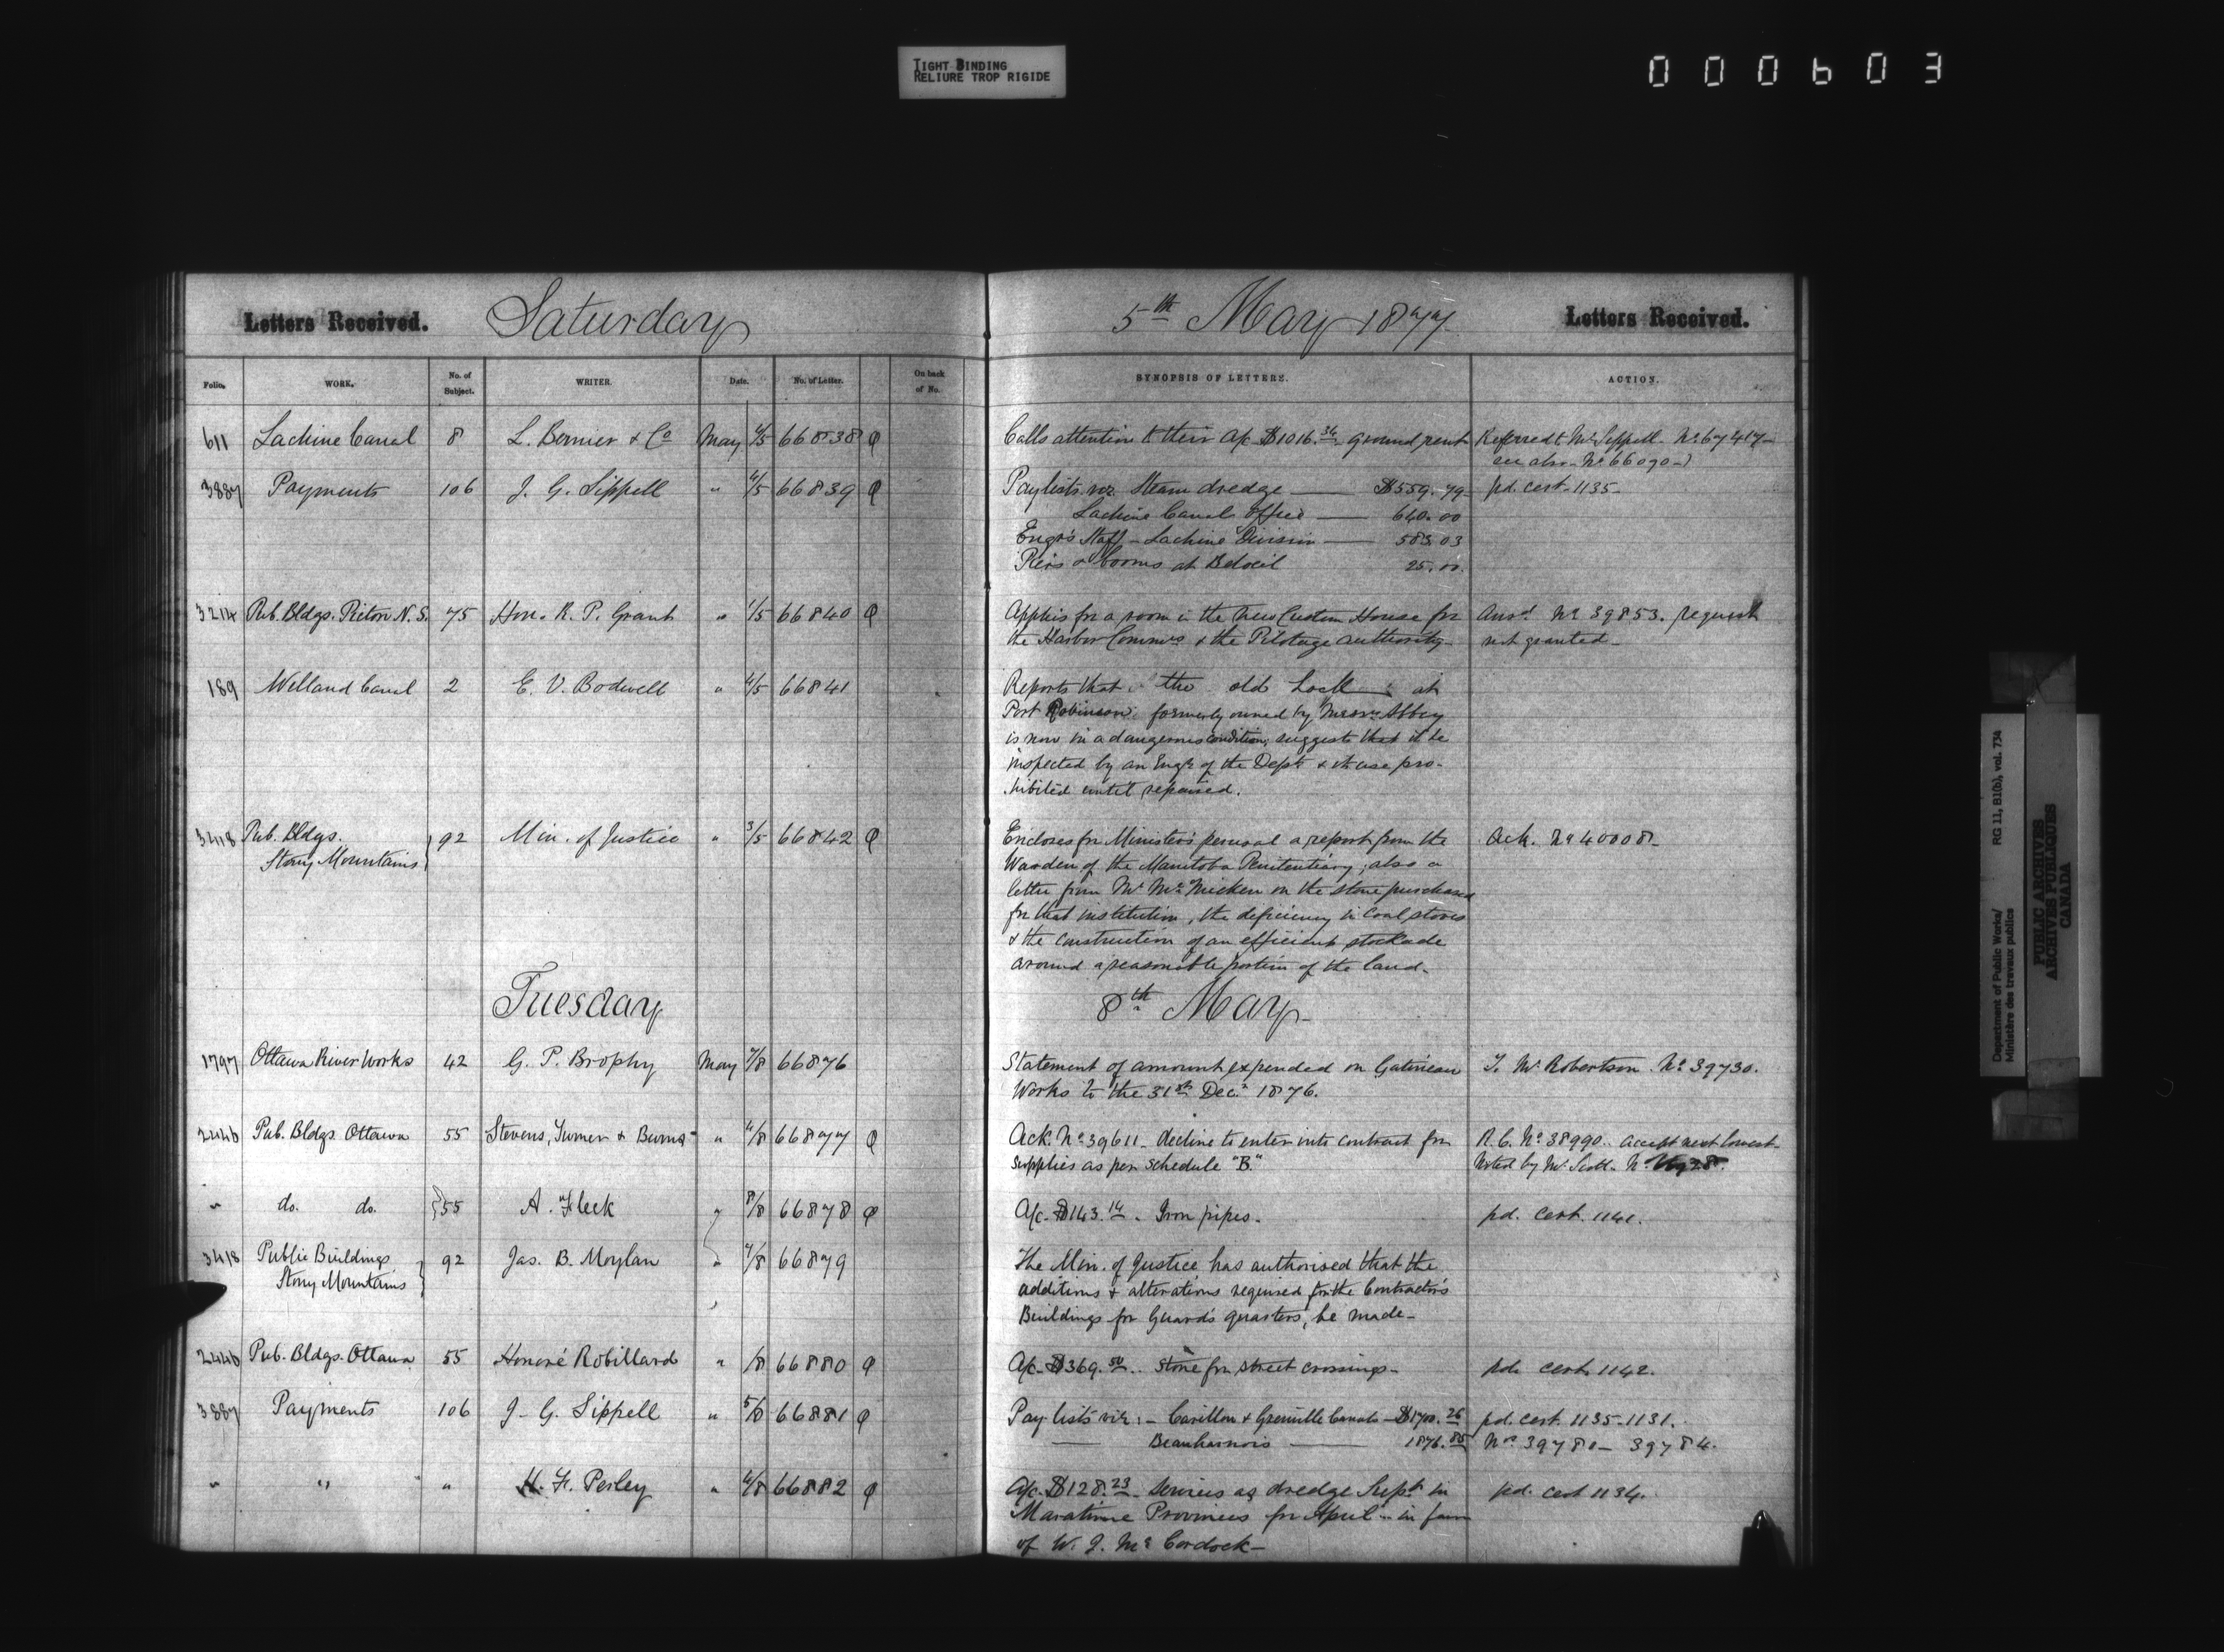 TIGHT BINDING
RELIURE TROP RIGIDE
000603
Letters Received. Saturday 5th May 1877. Letters Received.
Folio. WORK. No. of Subject. WRITER. Date. No. of Letter. On back of No. SYNOPSIS OF LETTERS. ACTION.
611 Lachine Canal 8 L. Bernier & Co May 4/5 66838 φ Calls attention to their a/c $1016.34 ground rent Referred to Mr Sippell. No. 67417-
see also No 66090-
3887 Payments 106 J. G. Sippell " 4/5 66839 φ Paylists viz Steam dredge — $559.79 pd. cert. 1135-
Lachine Canal Office — 640.00
Engr's Staff - Lachine Division — 583.03
Piers & booms at Beloeil 25.00.
3214 Pub. Bldgs. Pictou N.S. 75 Hon. R. P. Grant " 1/5 66840 φ Applies for a room in the New Custom House for Ansd. No 39853. request
the Harbor Commrs & the Pilotage authority- not granted-
189 Welland Canal 2 E. V. Bodwell " 4/5 66841 Reports that the old Lock at
Port Robinson formerly owned by Messrs Abbey
is now in a dangerous condition; suggests that it be
inspected by an Engr of the Dept & its use pro-
hibited until repaired.
3418 Pub. Bldgs. Stony Mountains 92 Min. of Justice " 3/5 66842 φ Encloses for Minister's perusal a report from the Ack. No 40008-
Warden of the Manitoba Penitentiary; also a
letter from Mr McMicken on the stone purchased
for that institution, the deficiency in coal stoves
& the construction of an efficient stockade
around a reasonable portion of the land-
Tuesday 8th May-
1797 Ottawa River Works 42 G. P. Brophy May 7/8 66876 Statement of amount expended on Gatineau To Mr Robertson. No 39730.
Works to the 31st Dec. 1876.
2446 Pub. Bldgs. Ottawa 55 Stevens, Turner & Burns " 4/8 66877 φ Ack. No 39611- decline to enter into contract for R.C. No 38990. accept next lowest-
supplies as per schedule "B." Noted by Mr Scott.
" do. do. 55 A. Fleck " 8/8 66878 φ A/c- $143.14. Iron pipes- pd. cert. 1141.
3418 Public Buildings Stony Mountains 92 Jas. B. Moylan " 7/8 66879 The Min. of Justice has authorised that the
additions & alterations required for the Contractor's
Buildings for Guard's quarters, be made-
2446 Pub. Bldgs. Ottawa 55 Honoré Robillard " /8 66880 φ A/c- $369.50. Stone for street crossings- pd. cert. 1142.
3887 Payments 106 J. G. Sippell " 5/8 66881 φ Pay-lists viz:- Carillon & Grenville Canals- $1700.26 pd. cert. 1135-1131.
Beauharnois — 1876.85 Nos 39780- 39784.
" " " H. F. Perley " 4/8 66882 φ A/c- $128.23 Services as dredge Supt. in pd. cert 1134.
Maratime Provinces for April- in favor
of W. J. McCordock-
Department of Public Works/
Ministère des travaux publics
RG 11, B1(b), vol. 734
PUBLIC ARCHIVES
ARCHIVES PUBLIQUES
CANADA